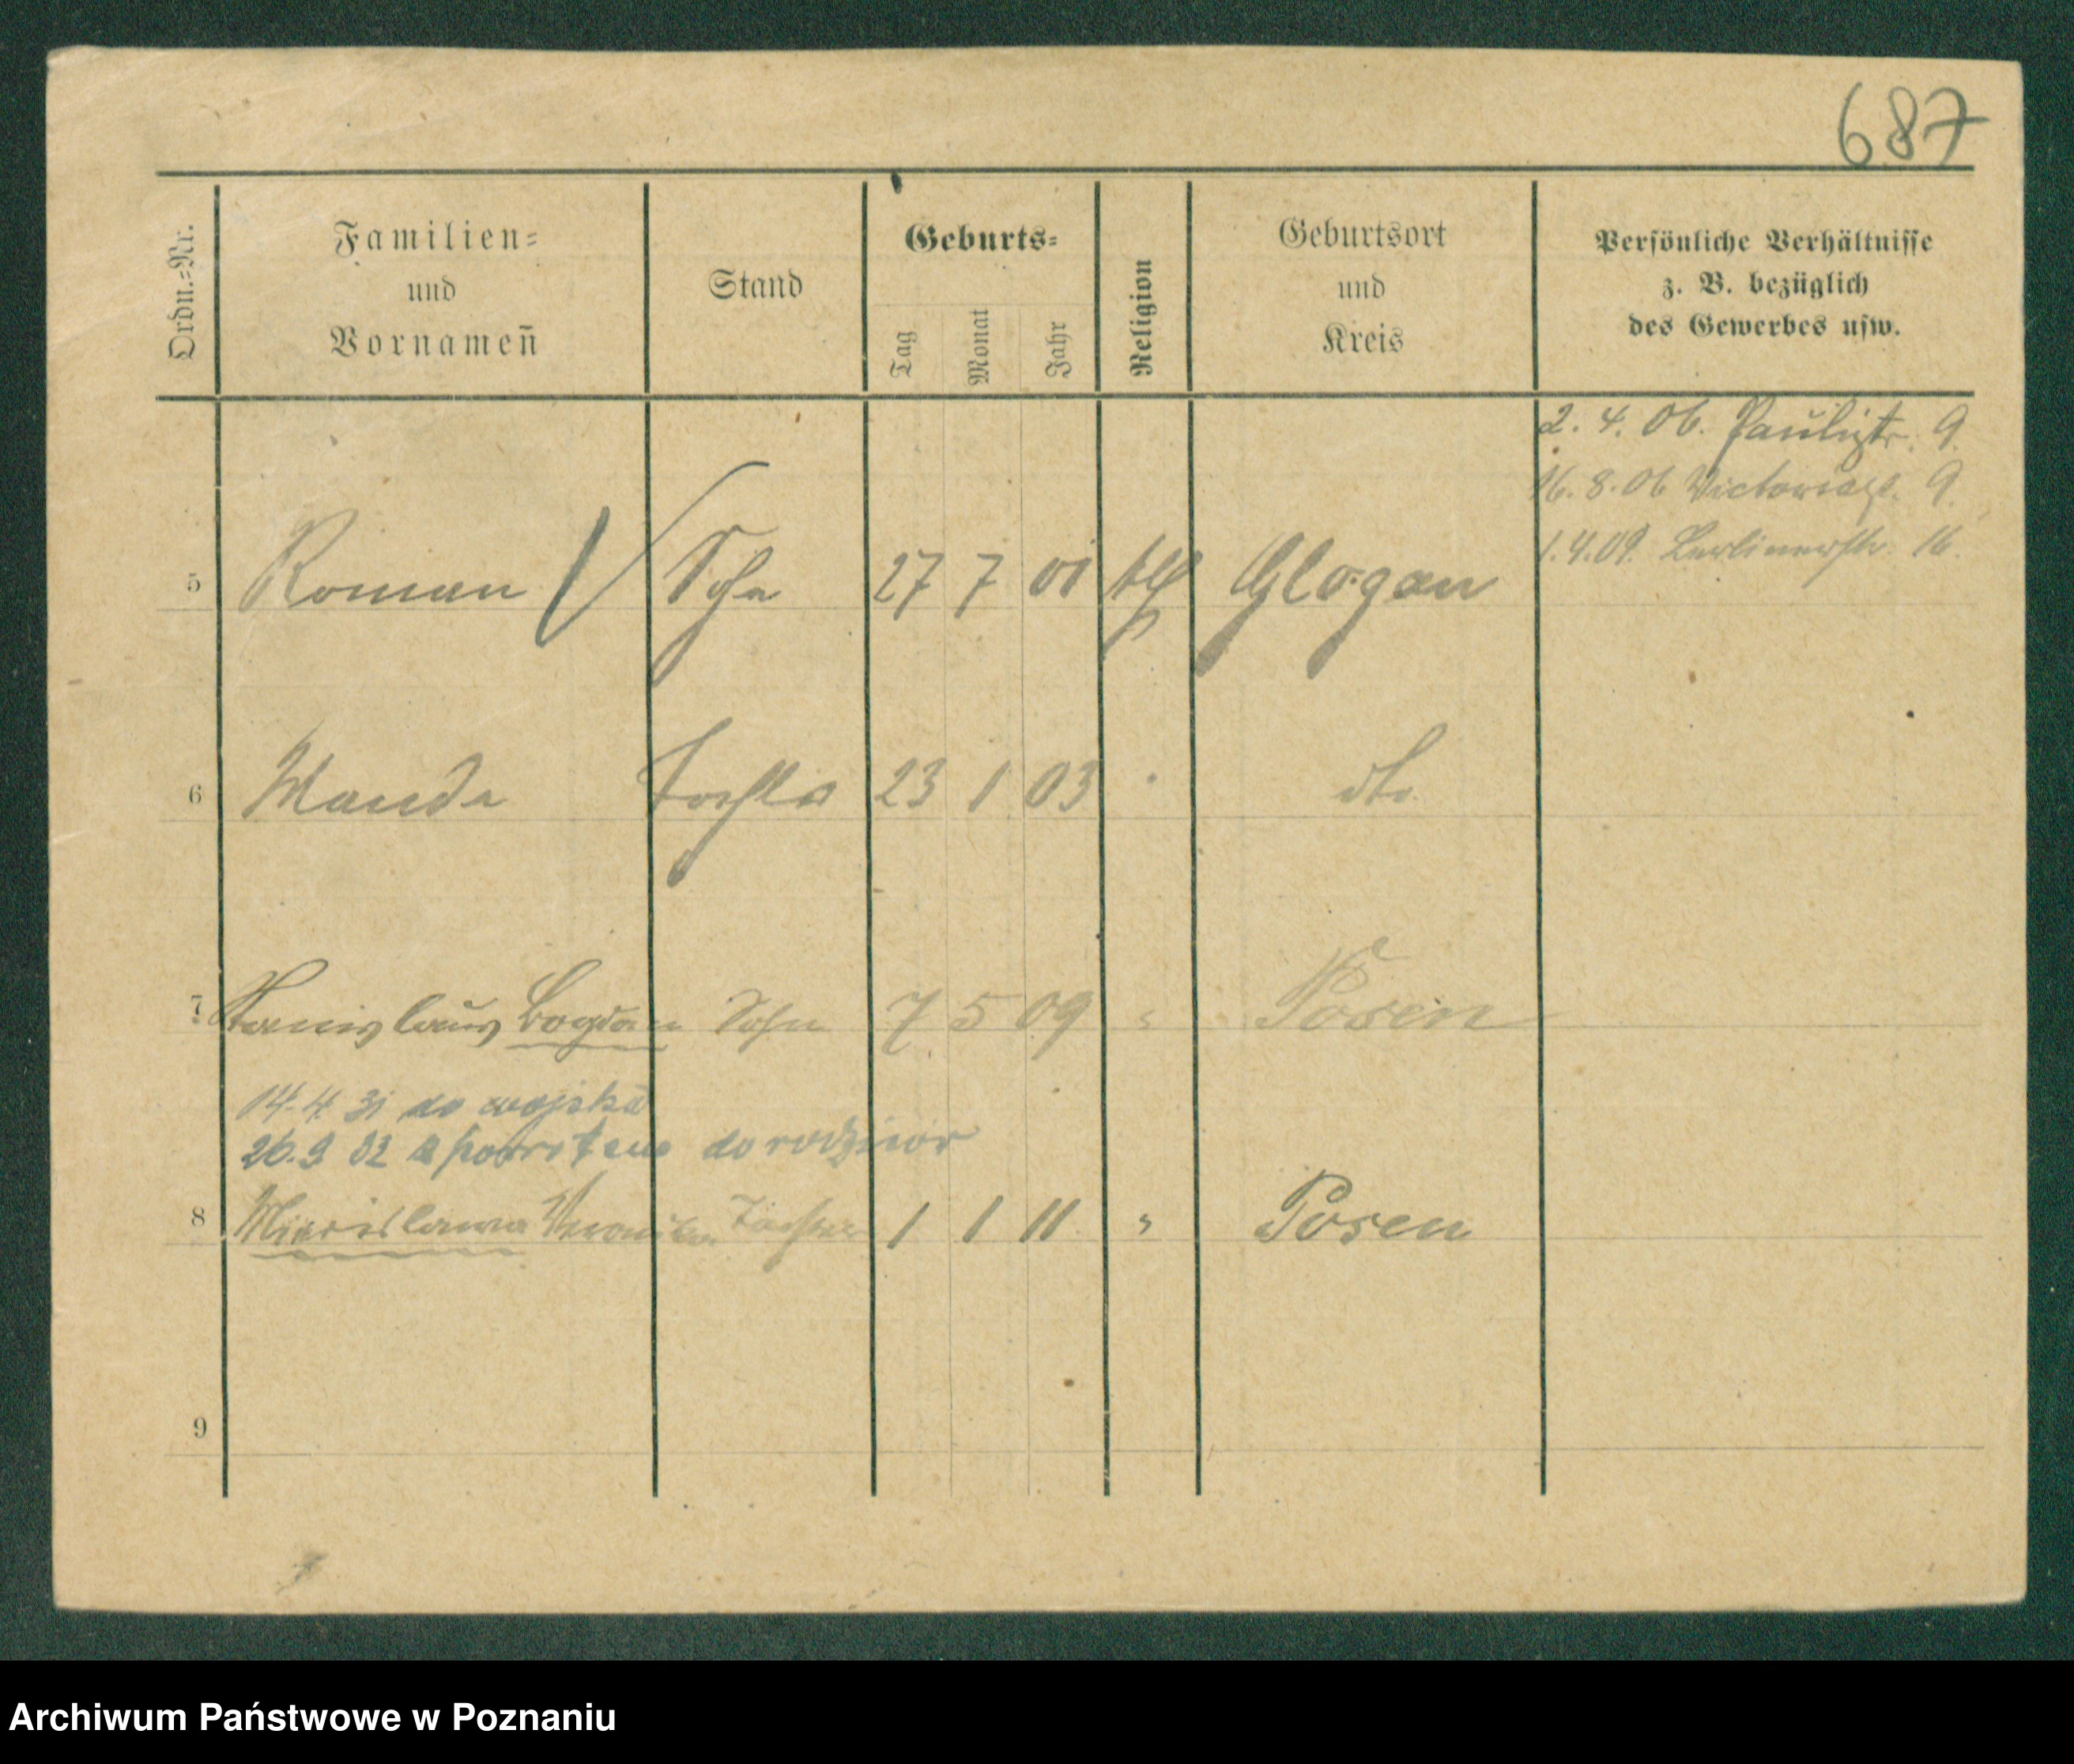 687
Ordn.=Nr.
Familien=
und
Vornameñ
Stand
Geburts=
Tag
Monat
Jahr
Religion
Geburtsort
und
Kreis
Persönliche Verhältnisse
z. B. bezüglich
des Gewerbes usw.
2. 4. 06. Paulistr. 9.
16. 8. 06 Victoriastr. 9.
1.4.09. Berlinerstr. 16.
5 Roman Sohn 27 7 01 kth Glogau
6 Wanda Tochter 23 1 03 " dto.
7 Stanislaus Bogdan Sohn 7. 5 09 " Posen
14.4 31 do wojska
26.9 32 z powrotem do rodziców
8 Miecislawa Veronika Tochter 1 1 11 " Posen
9
Archiwum Państwowe w Poznaniu